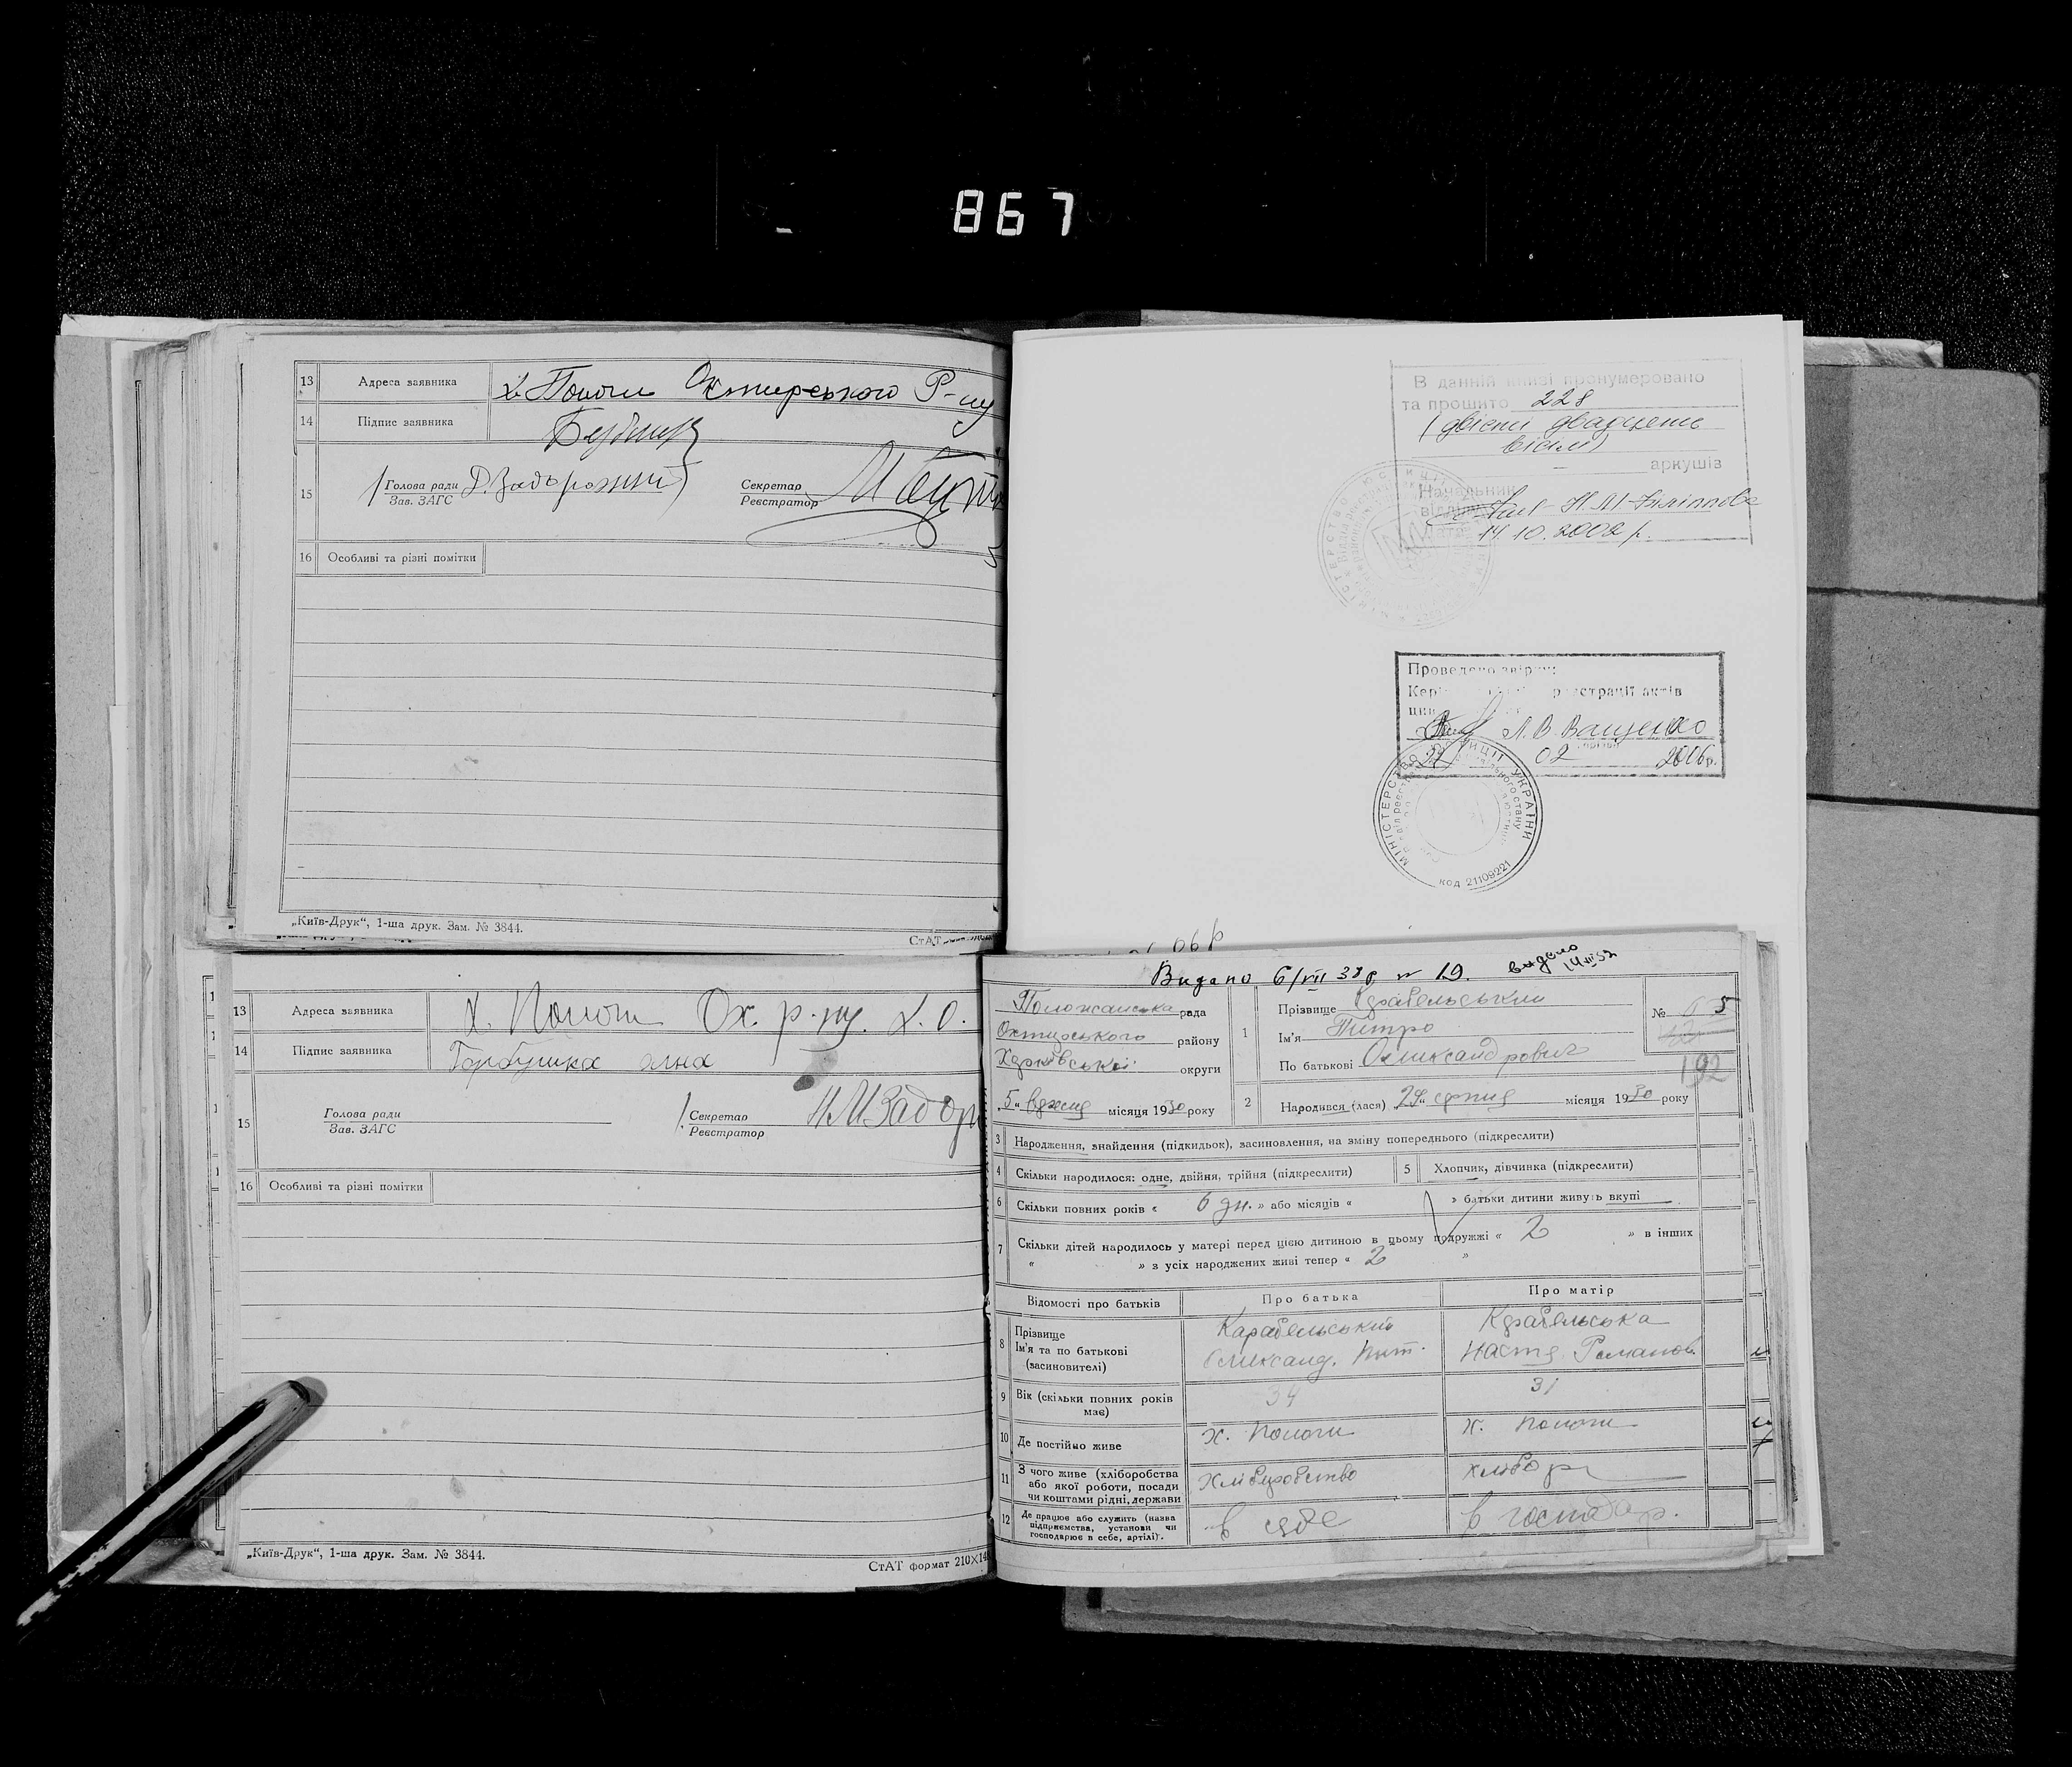 867
13 Адреса заявника х. Пологи Охтирського Р-ну
14 Підпис заявника
15 Голова ради Д. Задорожний Секретар
Зав. ЗАГС Реєстратор
16 Особливі та різні помітки
„Київ-Друк“, 1-ша друк. Зам. № 3844.
СтАТ
В данній книзі пронумеровано
та прошито 228
(двісти двадцять
вісім)
аркушів
Начальник
відділу
14.10.2002 р.
Проведено звірку
реєстрації актів
Л.В. Ващенко
22 02 2006р.
МІНІСТЕРСТВО ЮСТИЦІЇ УКРАЇНИ
код 21109221
13 Адреса заявника х. Пологи Ох. р-ну. Х.О.
14 Підпис заявника
15 Голова ради Секретар
Зав. ЗАГС Реєстратор
16 Особливі та різні помітки
„Київ-Друк“, 1-ша друк. Зам. № 3844.
СтАТ формат 210×148
Видано 6/VII 38р № 19. видано
рада
Охтирського району
Харківської округи
„5“ місяця 1930 року
1 Прізвище Карабельський
Ім'я Питро
По батькові Олександрович
№ 5
192
2 Народився (лася) 29 „ серпня місяця 1930 року
3 Народження, знайдення (підкидьок), засиновлення, на зміну попереднього (підкреслити)
4 Скільки народилося: одне, двійня, трійня (підкреслити) 5 Хлопчик, дівчинка (підкреслити)
6 Скільки повних років « 6 дн. » або місяців « » батьки дитини живуть вкупі
7 Скільки дітей народилось у матері перед цією дитиною в цьому подружжі « 2 » в інших
« » з усіх народжених живі тепер « 2 »
Відомості про батьків Про батька Про матір
8 Прізвище Карабельський Карабельська
Ім'я та по батькові Олександ. Пит. Настя Романов.
(засиновителі)
9 Вік (скільки повних років має) 34 31
10 Де постійно живе х. Пологи х. Пологи
11 З чого живе (хліборобства
або якої роботи, посади
чи коштами рідні, держави Хліборобство хлібор
12 Де працює або служить (назва
підприємства, установи чи
господарює в себе, артілі). в себе в господар.